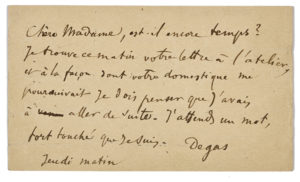 Chère Madame, est-il encore temps?
Je trouve ce matin votre lettre à l'atelier,
et à la façon dont votre domestique me
poursuivait je dois penser que j'avais
à aller de suite. J'attends un mot,
fort touché que je suis. Degas
Jeudi matin